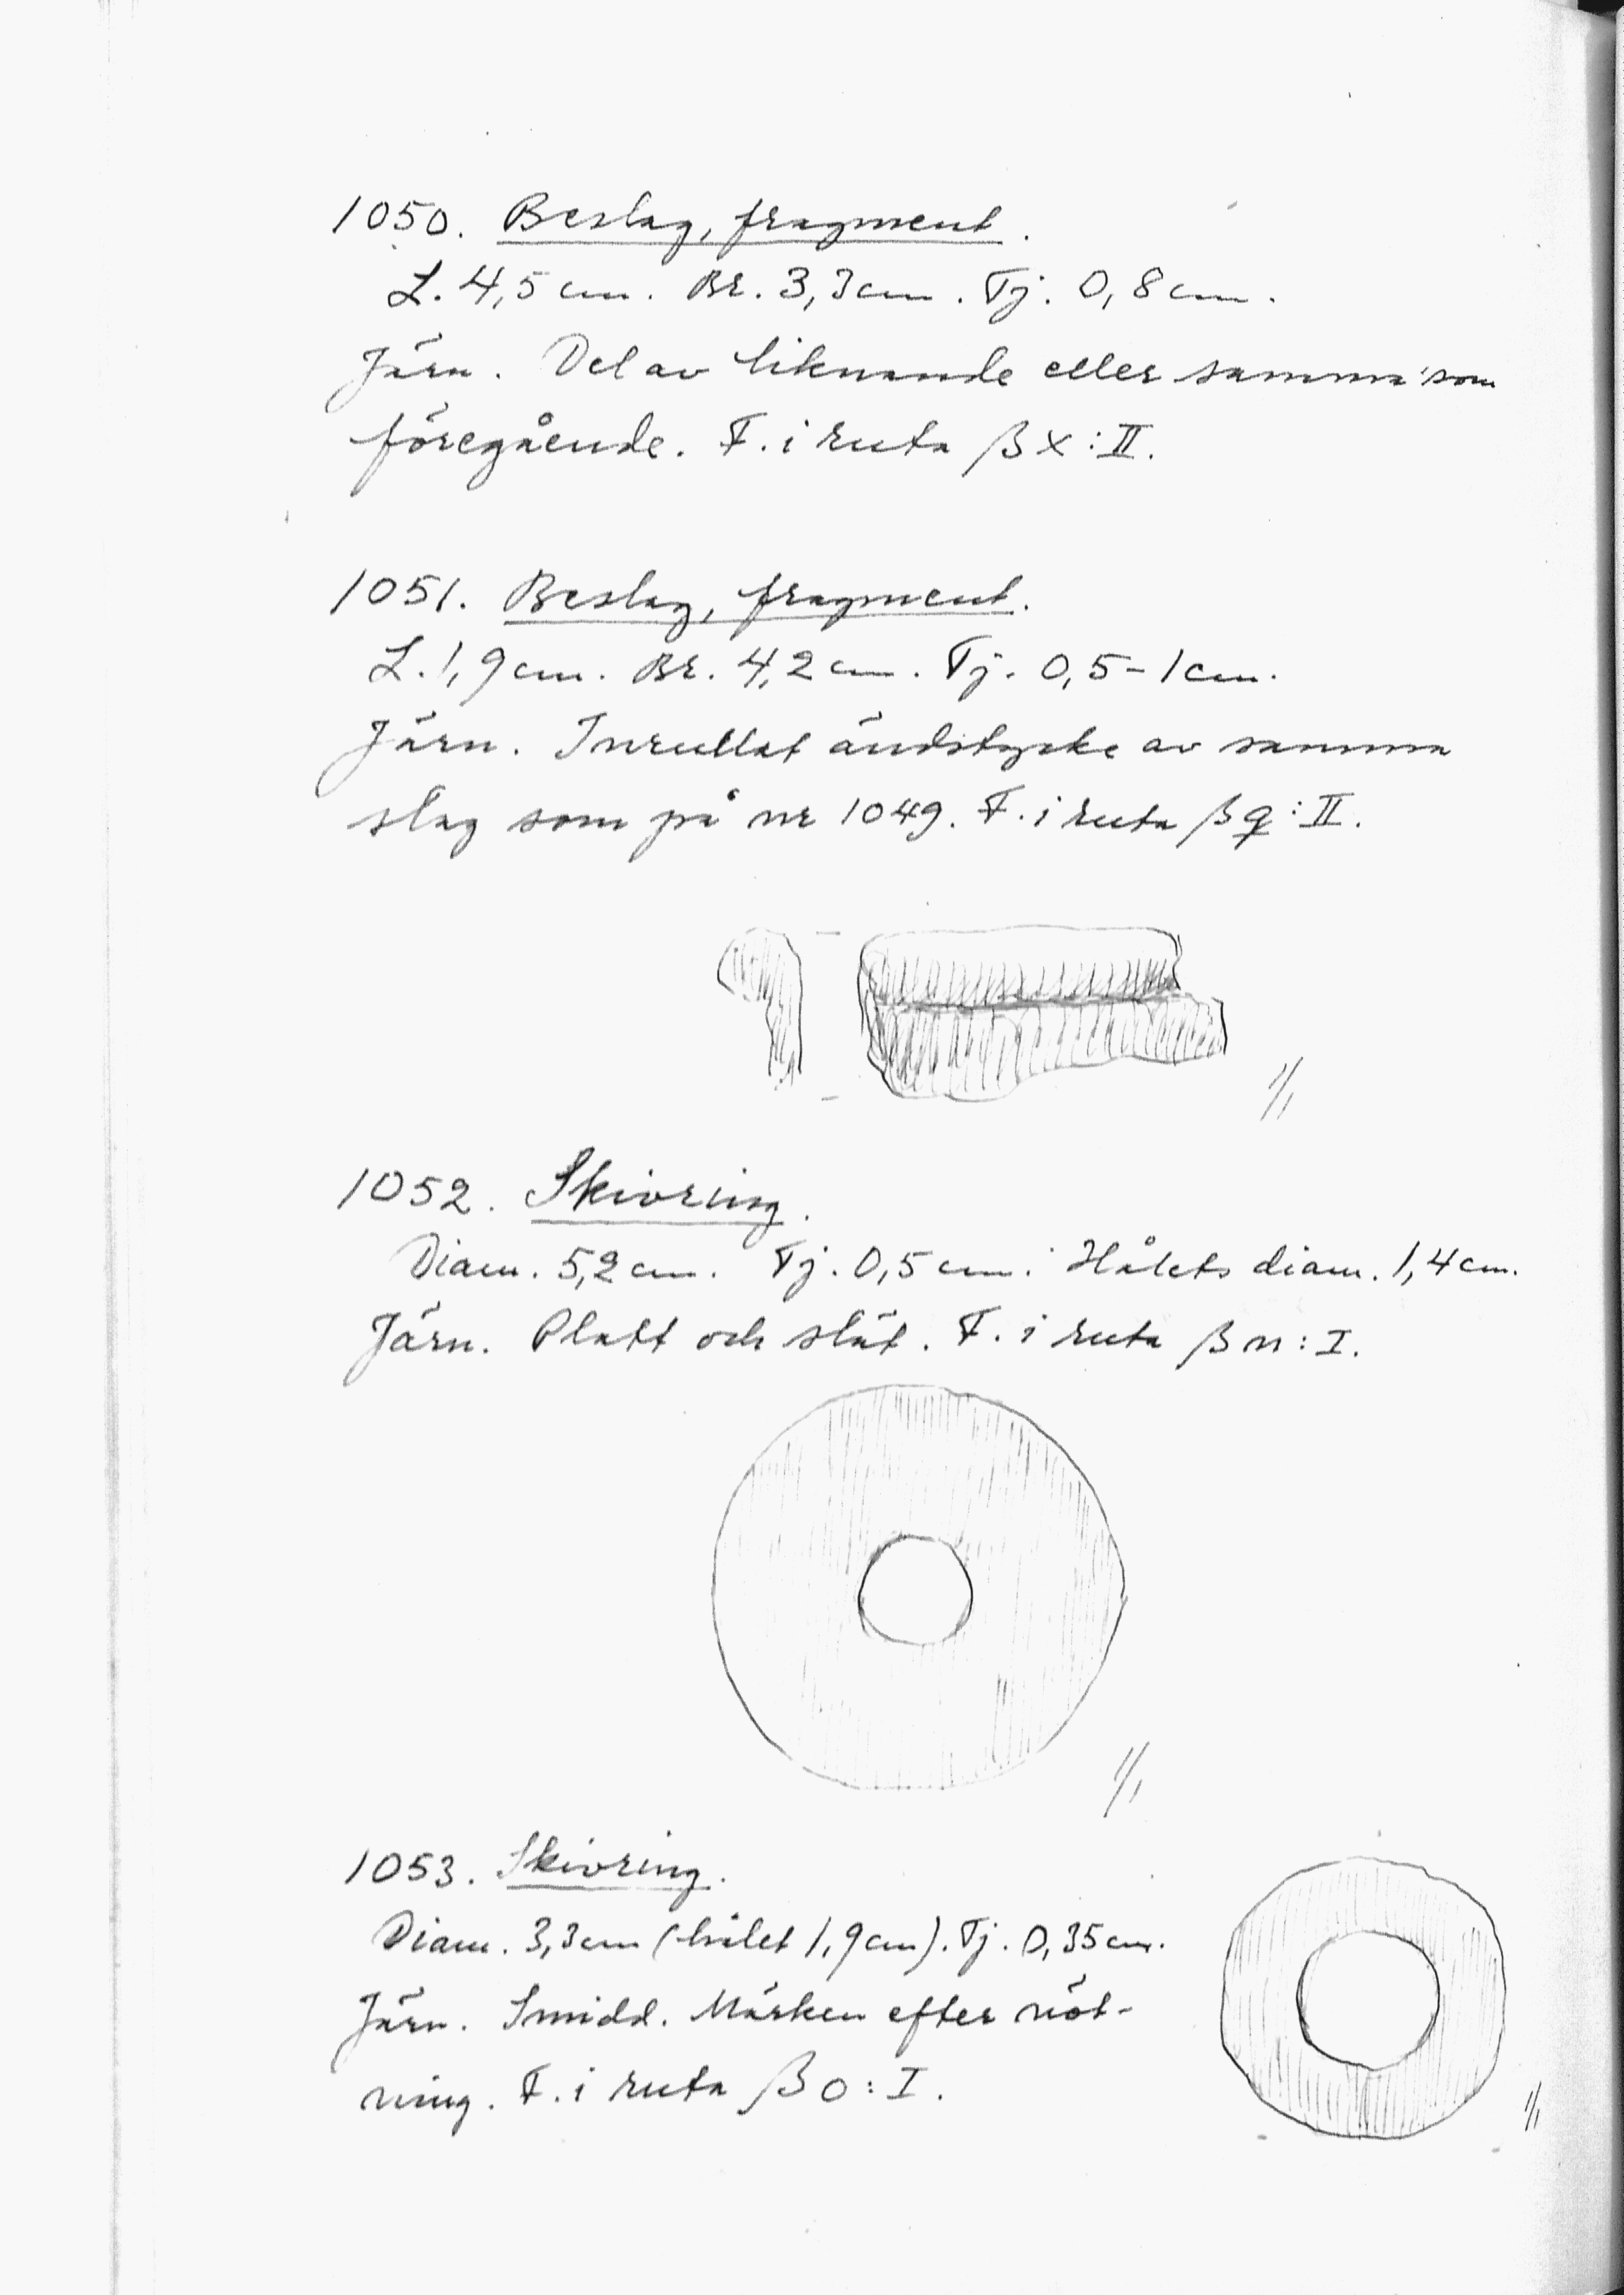 1050. Beslag, fragment.
L. 4,5 cm. Br. 3,3 cm. Tj. 0,8 cm.
Järn. Del av liknande eller samma som
föregående. F. i ruta β x : II.
1051. Beslag, fragment.
L. 1,9 cm. Br. 4,2 cm. Tj. 0,5 - 1 cm.
Järn. Inrullat ändstycke av samma
slag som på nr 1049. F. i ruta β q : II.
1/1
1052. Skivring.
Diam. 5,2 cm. Tj. 0,5 cm. Hålets diam. 1,4 cm.
Järn. Platt och slät. F. i ruta β n : I.
1/1
1053. Skivring.
Diam. 3,3 cm (hålet 1,9 cm). Tj. 0,35 cm.
Järn. Smidd. Märken efter nöt-
ning. F. i ruta β o : I.
1/1